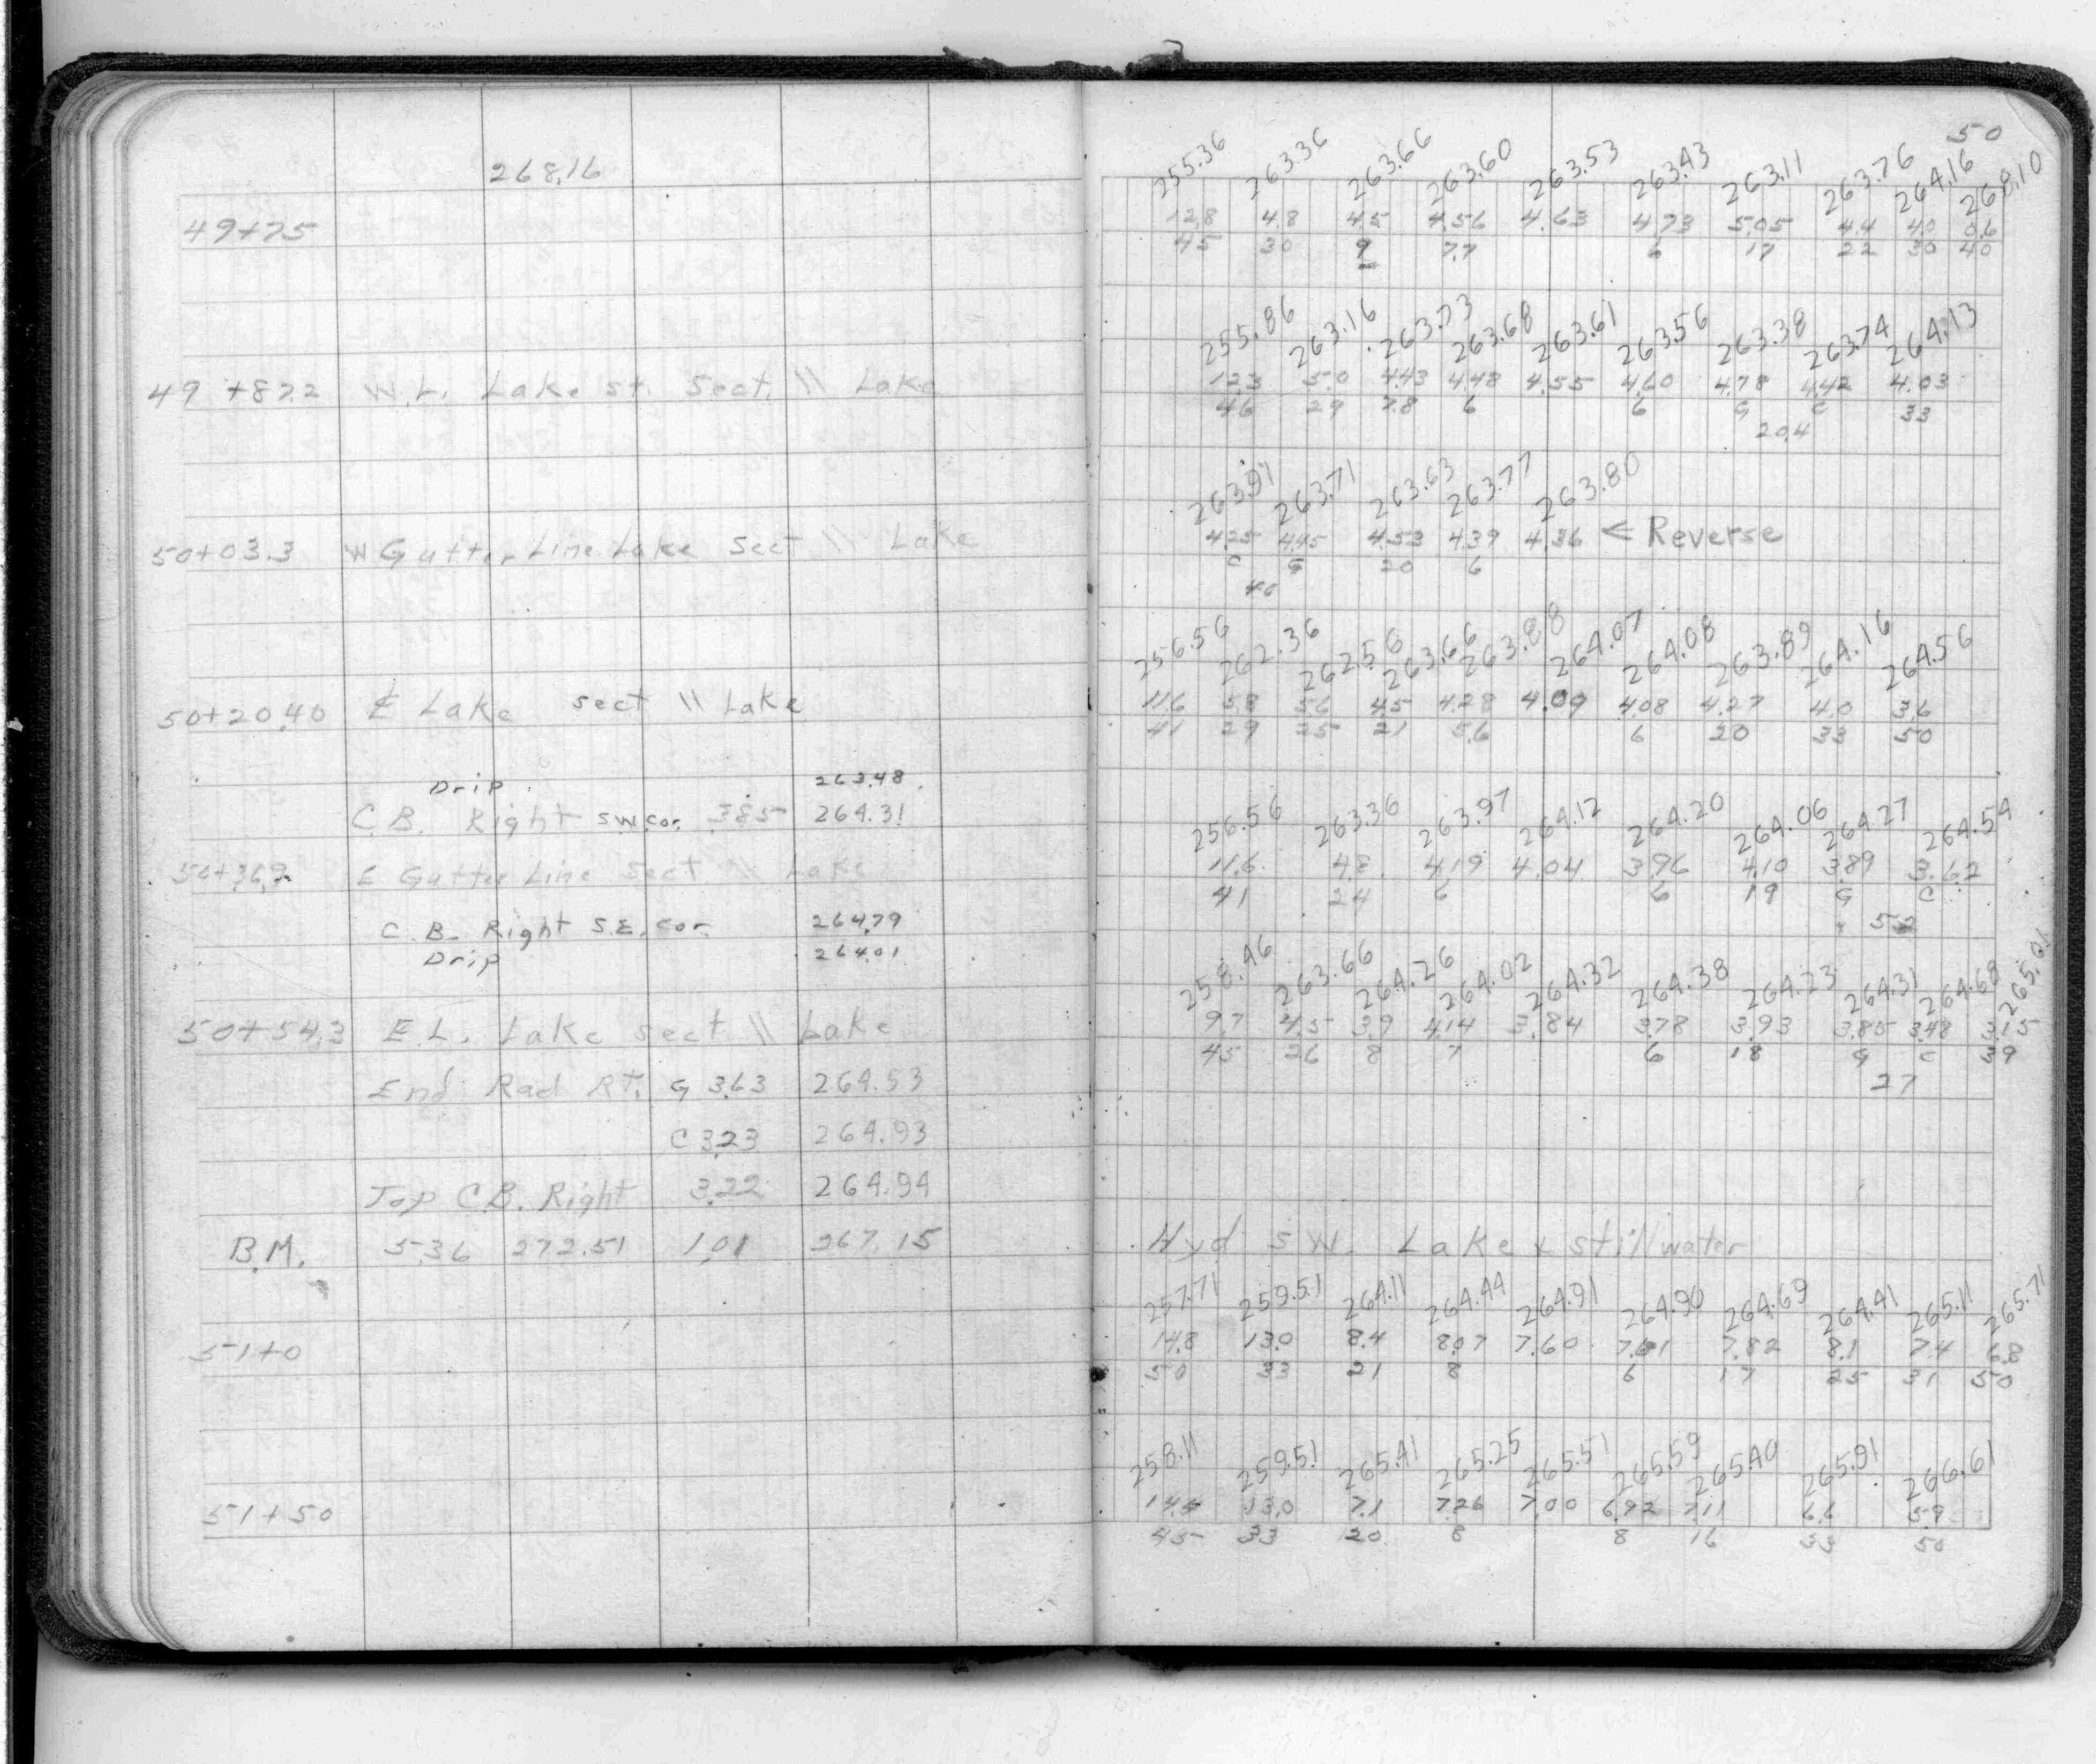 50
268.16
255.36 263.36 263.66 263.60 263.53 263.43 263.11 263.76 264.16 268.10
49+75 12.8 4.8 4.5 4.56 4.63 4.73 5.05 4.4 4.0 0.6
45 30 9 7.7 6 17 22 30 40
255.86 263.16 263.73 263.68 263.61 263.56 263.38 263.74 264.13
49 +87.2 W.L. Lake st. Sect. \\ Lake 12.3 5.0 4.43 4.48 4.55 4.60 4.78 4.42 4.03
46 29 7.8 6 6 G C 33
20.4
263.91 263.71 263.63 263.77 263.80
50+03.3 W Gutter Line Lake Sect \\ Lake 4.25 4.45 4.53 4.39 4.36 < Reverse
C G 20 6
46
256.56 262.36 262.56 263.66 263.88 264.07 264.08 263.89 264.16 264.56
50+20.40 ⅊ Lake sect \\ Lake 11.6 5.8 5.6 4.5 4.28 4.09 4.08 4.27 4.0 3.6
41 29 25 21 5.6 6 20 33 50
Drip 263.48
C.B. Right S.W. cor. 3.85 264.31
256.56 263.36 263.97 264.12 264.20 264.06 264.27 264.54
50+36.9 E Gutter Line Sect \\ Lake 11.6 4.8 4.19 4.04 3.96 4.10 3.89 3.62
41 24 6 6 19 G C
C.B. Right S.E. cor. 264.79
Drip 264.01
258.46 263.66 264.26 264.02 264.32 264.38 264.23 264.31 264.68 265.01
50+54.3 E.L. Lake sect \\ Lake 9.7 4.5 3.9 4.14 3.84 3.78 3.93 3.85 3.48 3.15
45 26 8 7 6 18 G C 39
27
End Rad Rt. G 3.63 264.53
C 3.23 264.93
Top C.B. Right 3.22 264.94
B.M. 5.36 272.51 1.01 267.15 Hyd S.W. Lake & Stillwater
257.71 259.51 264.11 264.44 264.91 264.90 264.69 264.41 265.11 265.71
51+0 14.8 13.0 8.4 8.07 7.60 7.61 7.82 8.1 7.4 6.8
50 33 21 8 6 17 25 31 50
258.11 259.51 265.41 265.25 265.51 265.59 265.40 265.91 266.61
51+50 14.4 13.0 7.1 7.26 7.00 6.92 7.11 6.6 5.9
45 33 20 8 8 16 33 50